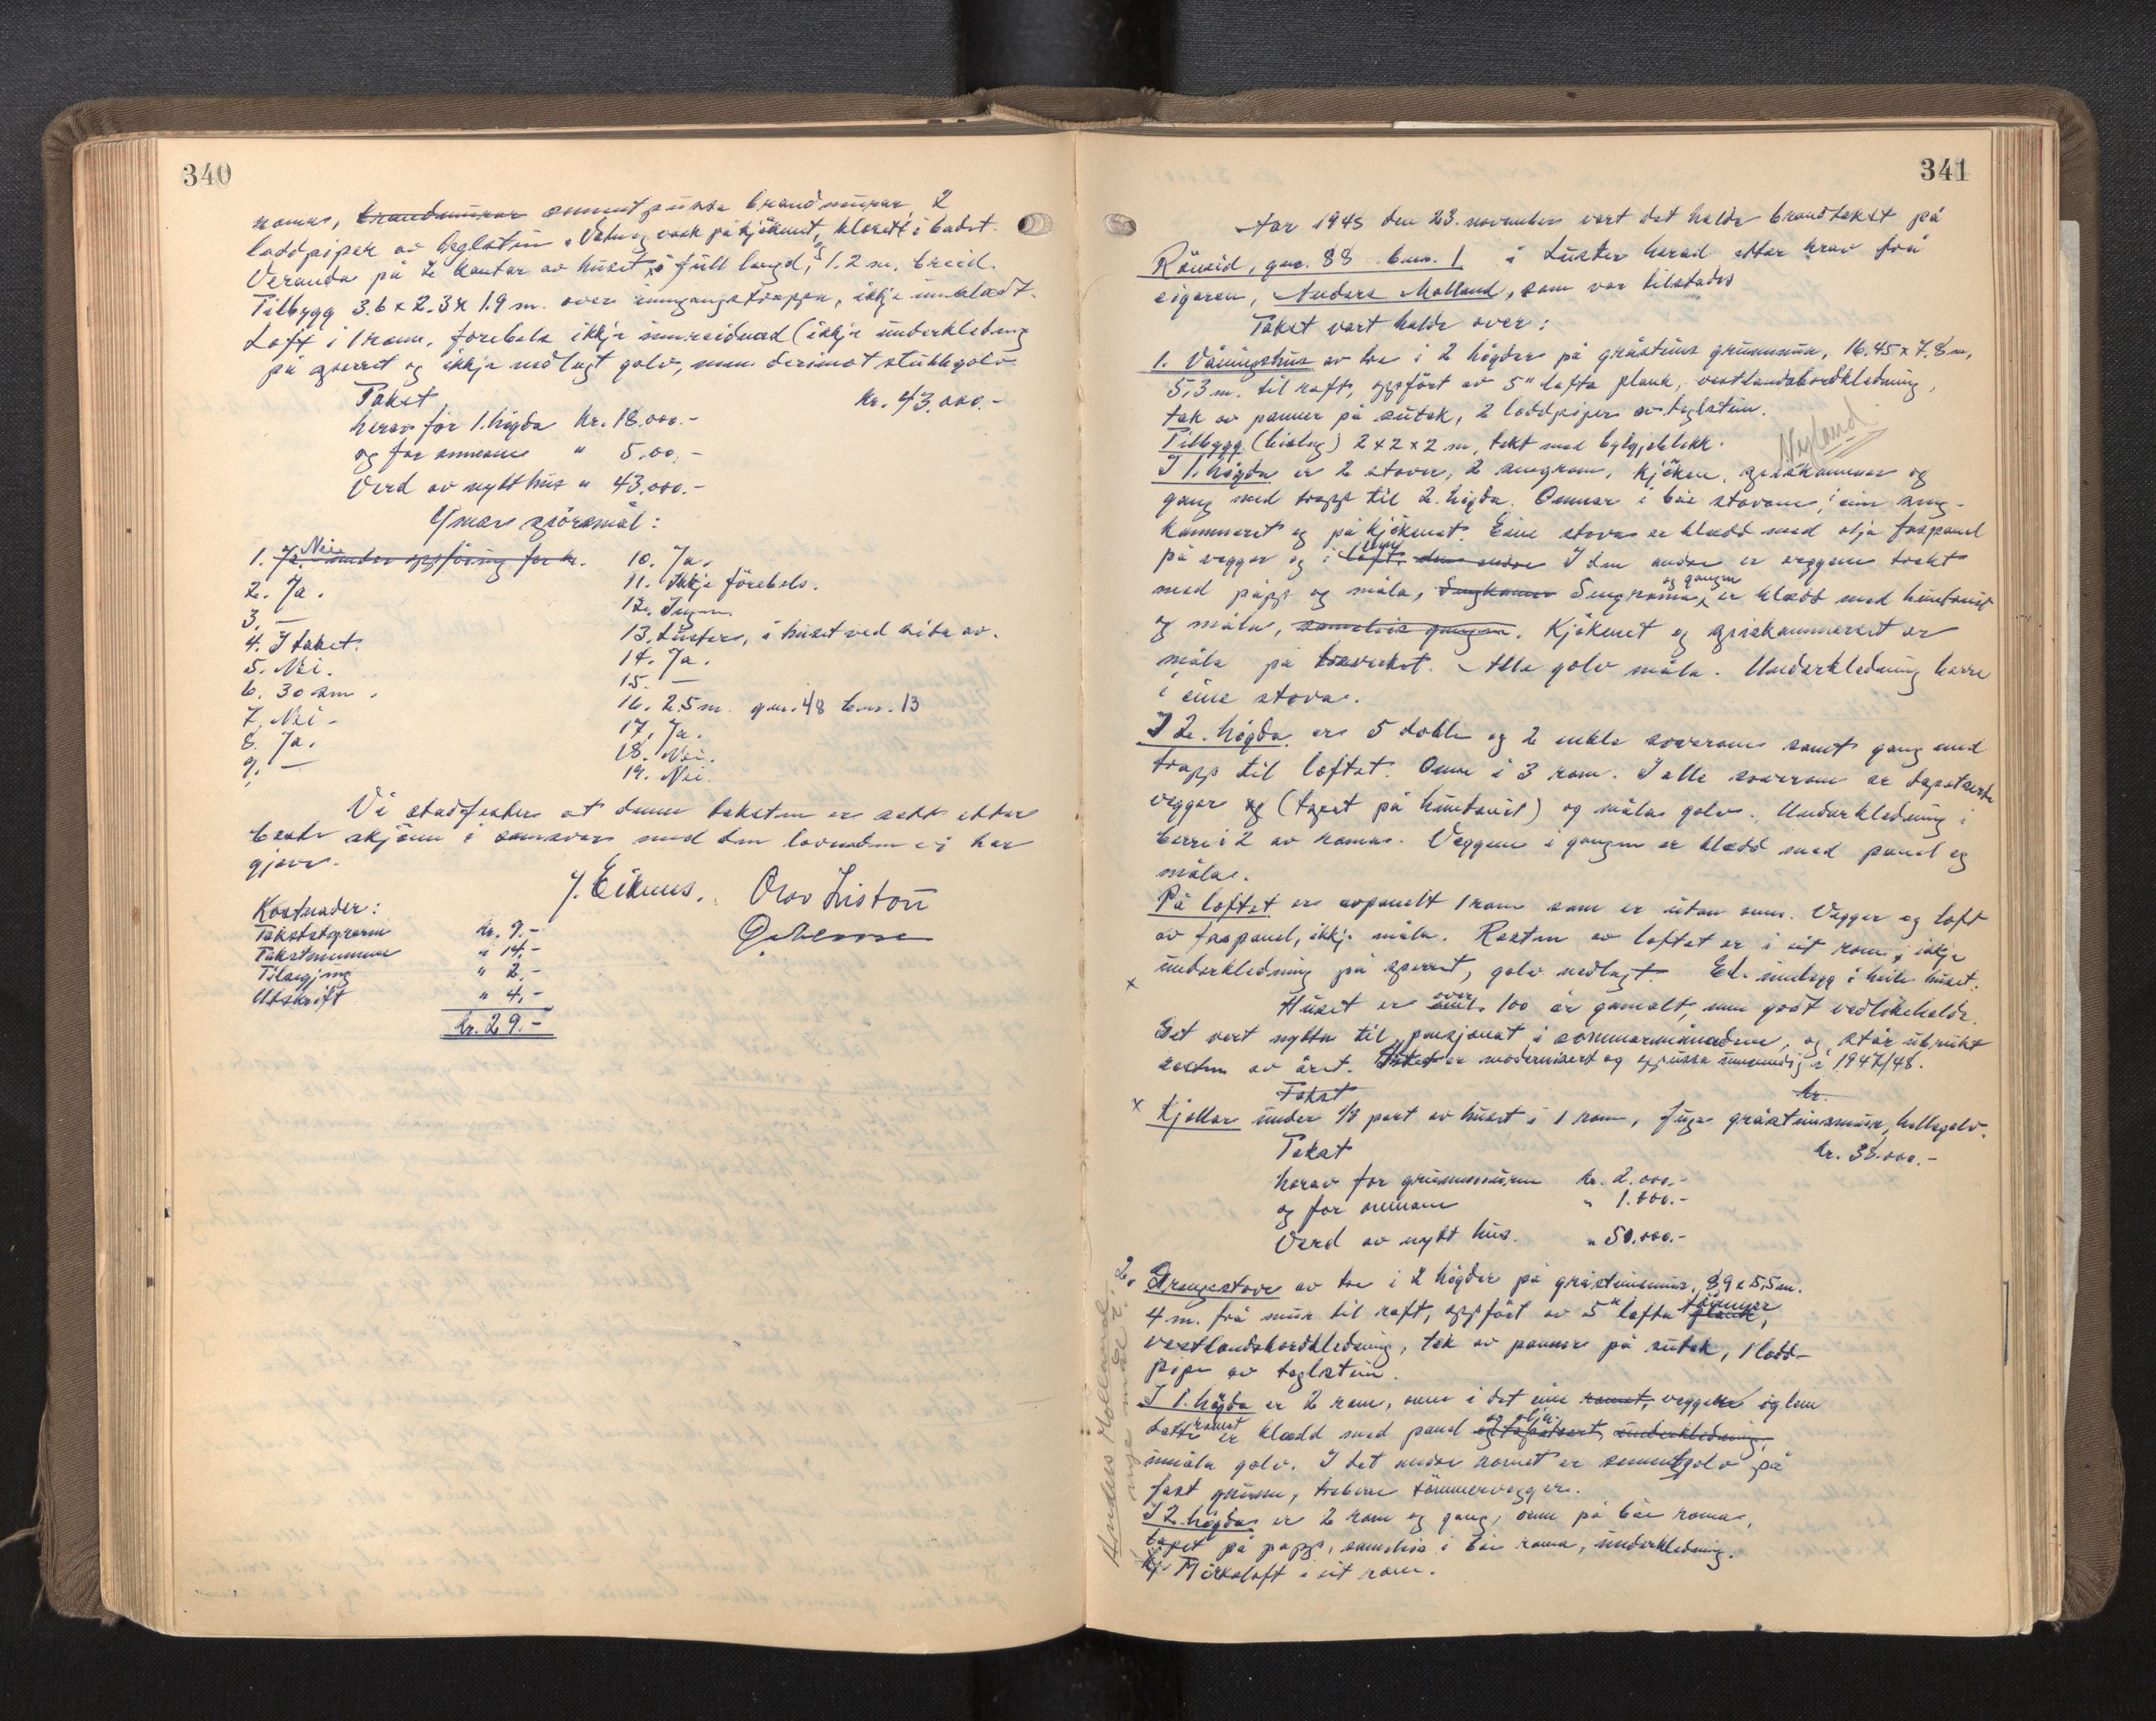 340
romar, brandmurar sementpussa brandmurar, 2
loddpiper av teglstein. Vatn og vask på kjökenet, klosett i badet.
Veranda på 2 kantar av huset, i full lengd, 1.2 m. breid.
Tilbygg 3.6 x 2.3 x 1.9 m. over inngangstrappa, ikkje innklædt.
Loft i 1 rom, förebels ikkje innreidned (ikkje underkledning
på sperret og ikkje nedlagt golv, men derimot stubbgolv
Takst kr. 43.000.-
herav for 1. högda kr. 18.000.-
og for omnane " 5.00.-
Verd av nytt hus " 43.000.-
Ymse spörsmål:
1. Ja. under oppföring for kr. Nei
2. Ja.
3. —
4. I taket.
5. Nei.
6. 30 sm.
7. Nei.
8. Ja.
9. —
10. Ja.
11. Ikkje förebels.
12. Ingen
13. Lusters, i huset ved sida av.
14. Ja.
15. —
16. 2.5 m. gnr. 48 bnr. 13
17. Ja.
18. Nei.
19. Nei.
Vi stadfester at denne taksten er sett etter
beste skjönn i samsvar med den lovnaden vi har
gjeve.
J. Eikums. Orav Liston
Kostnader:
Takstutgreiin kr. 9.-
Takstmennene " 14.-
Tilsegjing " 2.-
Utskrift " 4.-
kr. 29.-
341
Aar 1948 den 23. november vart det halde brandtakst på
Röneid, gnr. 88 bnr. 1 i Luster herad etter krav frå
eigaren, Anders Molland, som var tilstades
Takst vart halde over:
1. Våningshus av tre i 2 högder på gråsteins grunnmur, 16.45 x 7.8 m,
5,3 m. til raft, oppfört av 5" lafta plank, vestlandsbordkledning,
tak av panner på sutak, 2 loddpiper av teglstein.
Nyland
Tilbygg (bislag) 2 x 2 x 2 m, tekt med bylgjeblekk.
I 1. högda er 2 stover, 2 sengrom, kjöken, spiskammer og
gang med trapp til 2. högda. Omnar i båe stovane, i ein seng-
kammeret og på kjökenet. Eine stova er klædd med olja faspanel
på veggar og i loft, den andre I den andre er veggene trekt
med papp og måla, Sengkamer Sengroma og gangen er klædd med huntonit
og måla, sameleis gangen. Kjökenet og spiskammerset er
måla på treverket. Alle golv måla. Underkledning berre
i eine stova.
I 2. högda er 5 doble og 2 enkle soverom samt gang med
trapp til loftet. Omn i 3 rom. I alle soverom er tapetserte
veggar og (tapet på huntonit) og måla golv. Underkledning i
berre i 2 av romas. Veggene i gangen er klædd med panel og
måla.
På loftet er avpanelt 1 rom som er utan omn. Vegger og loft
av faspanel, ikkje måla. Resten av loftet er i eit rom, ikkje
underkledning på sperret, golv nedlagt. El. innlegg i heile huset.
x
Huset er over 100 år gamalt, men godt vedlikehalde.
Det vert nytta til pensjonat i sommarmånadene, og står ubrukt
resten av året. Huset er modernisert og oppussa innvendig i 1947/48.
Takst kr.
x Kjellar under 1/3 part av huset i 1 rom, fuga gråsteinsmur, hellegolv.
Takst kr. 38.000.-
herav for grunnmuren kr. 2.000.-
og for omnane " 1.000.-
Verd av nytt hus. " 50.000.-
2. Drengestove av tre i 2 högder på gråsteinsmur, 8,9 x 5,5 m.
4 m. frå mur til raft, oppfört av 5" lafta plank, tömmer
vestlandsbordkledning, tak av panner på sutak, 1 lodd-
pipe av teglstein.
I 1. högda er 2 rom, omn i det eine romet, veggene og lem
dette romet er klædd med panel og tapetsert, underkledning, og olja.
umåla golv. I det andre romet er sementgolv på
fast grunn, treberre tömmervegger.
I 2. högda er 2 rom og gang, omn på båe roma,
tapet på papp, sameleis i båe roma, underkledning.
Mörkaloft i eit rom.
Anders Molland.